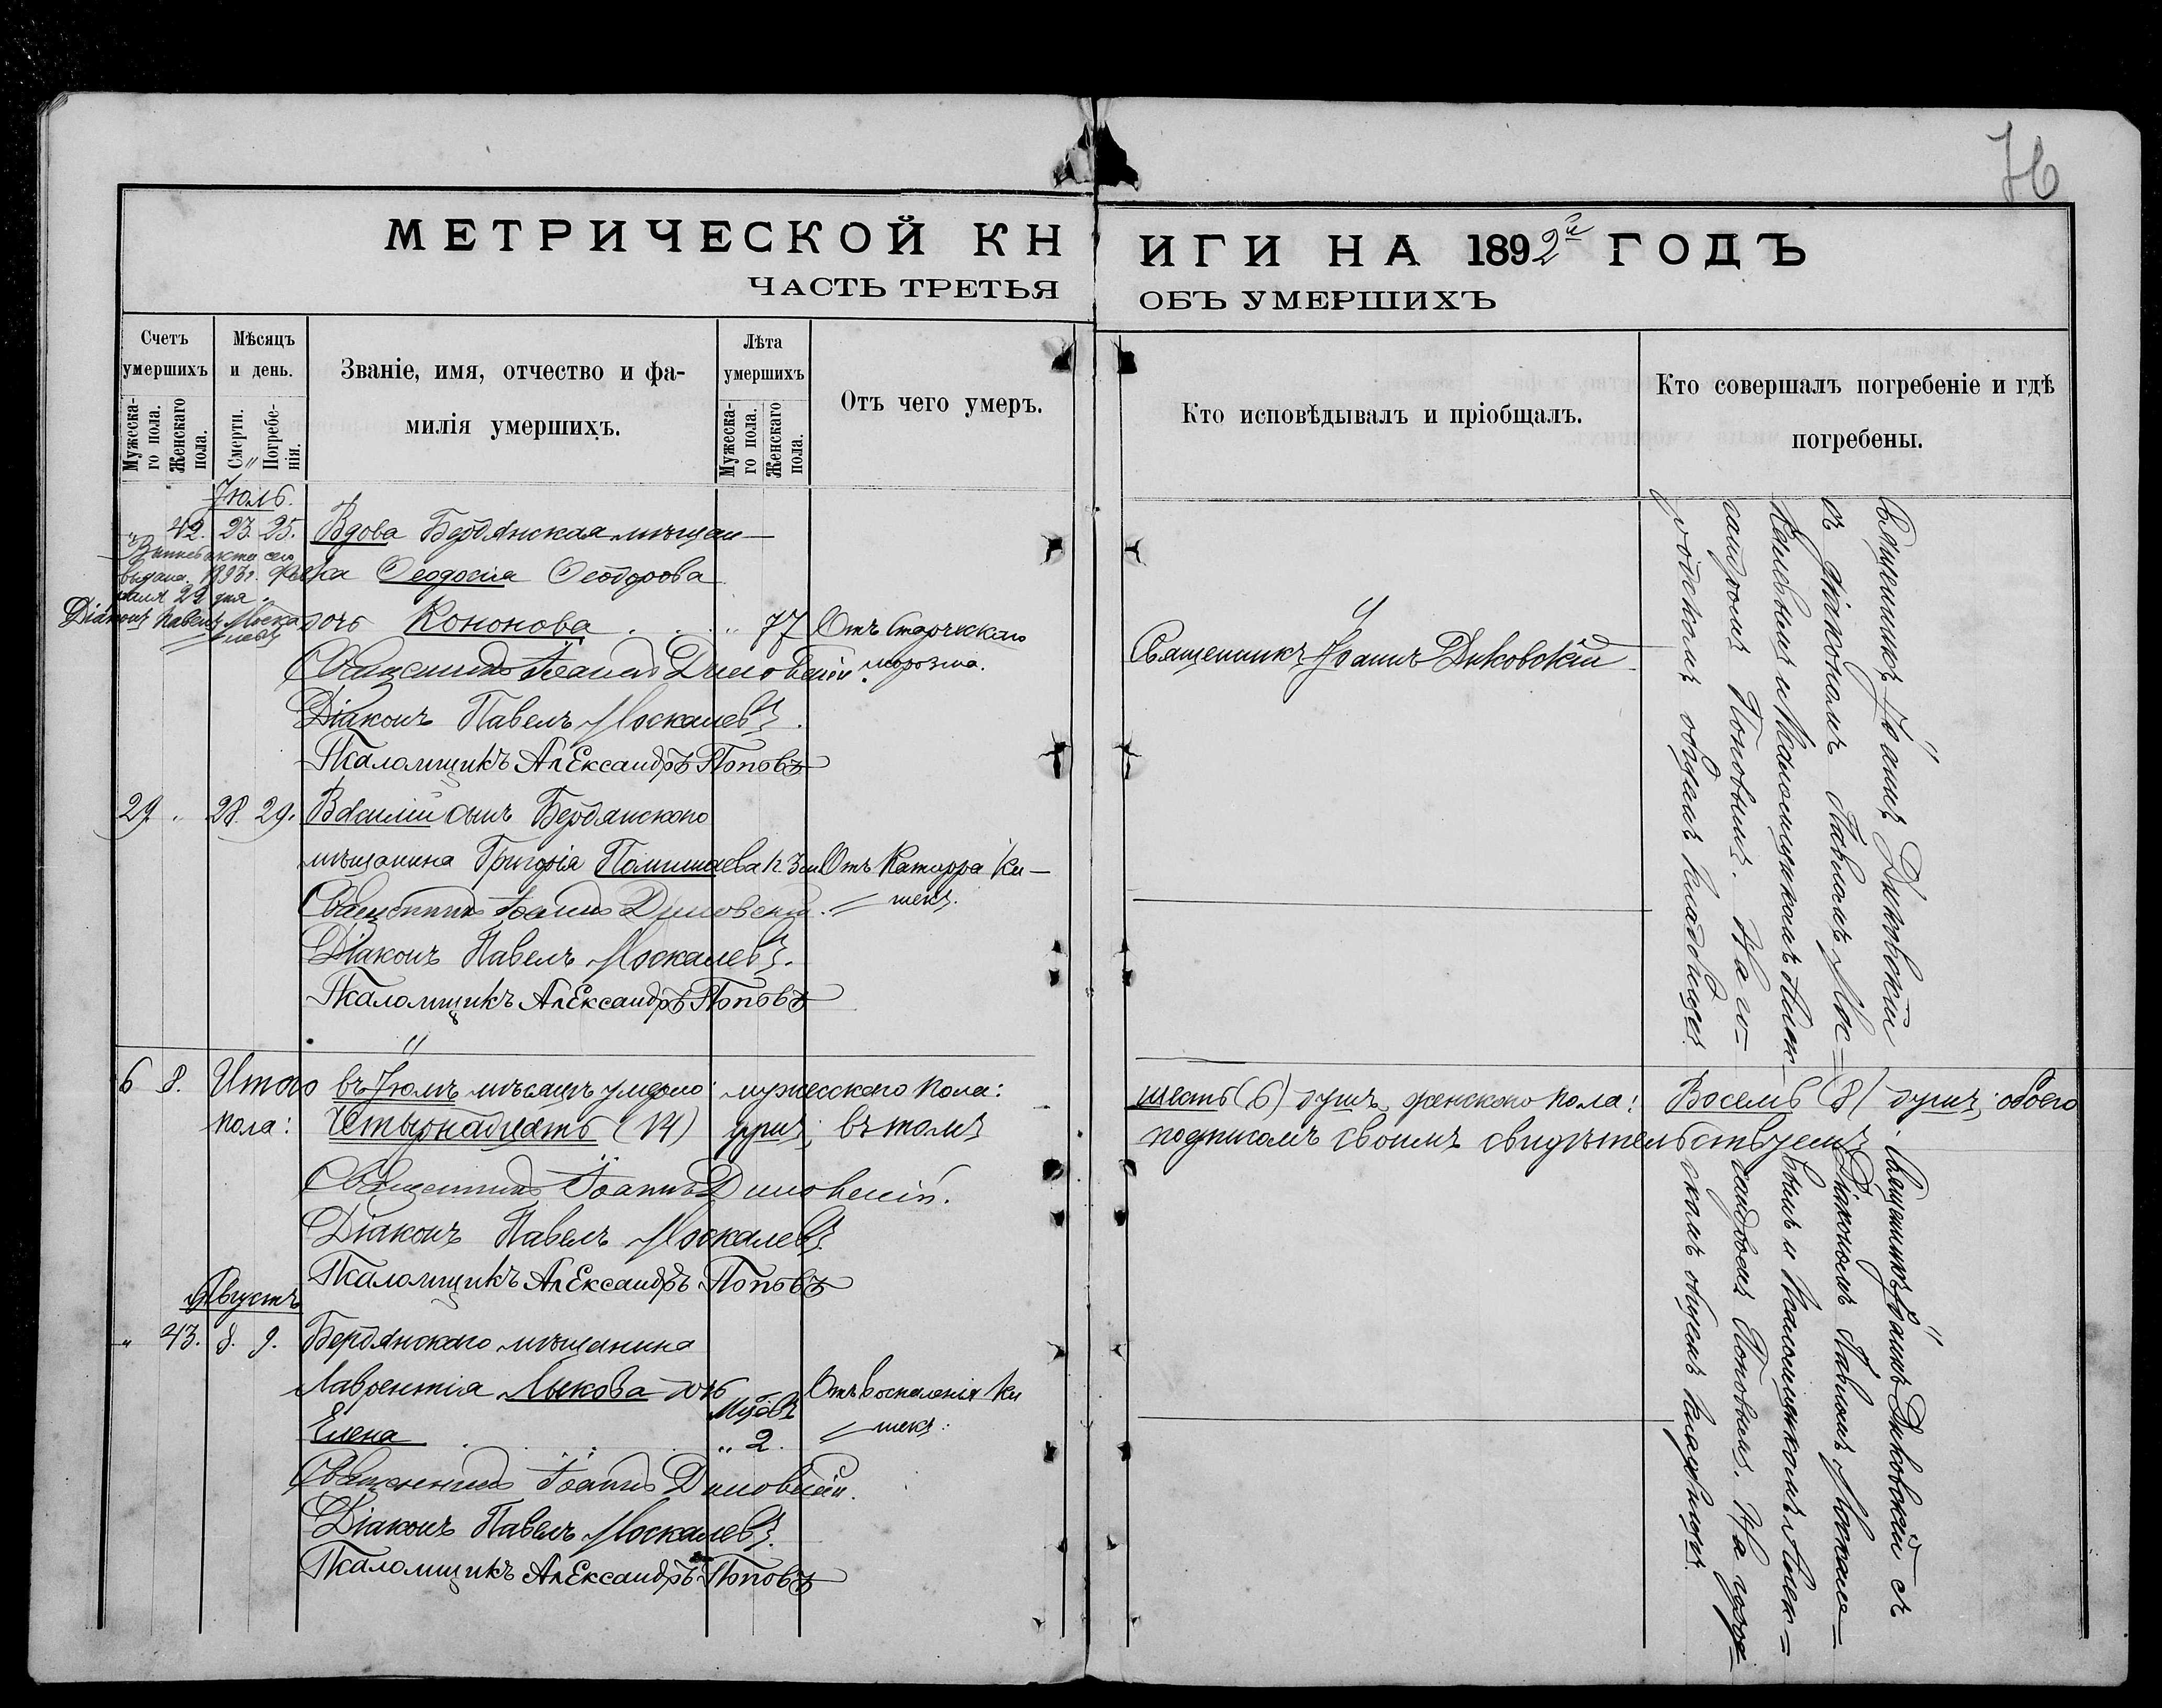 76
МЕТРИЧЕСКОЙ КН
ИГИ НА 1892й ГОДЪ
ЧАСТЬ ТРЕТЬЯ
ОБЪ УМЕРШИХЪ
Счетъ умершихъ
Мужескаго пола.
Женскаго пола.
Мѣсяцъ и день.
Смерти.
Погребенія.
Званіе, имя, отчество и фамилія умершихъ.
Лѣта умершихъ
Мужескаго пола.
Женскаго пола.
Отъ чего умеръ.
Кто исповѣдывалъ и пріобщалъ.
Кто совершалъ погребеніе и гдѣ погребены.
Іюль.
" 42. 23. 25. Вдова Бердянская мѣщан-
ка Ѳеодосія Ѳеодорова
дочь Кононова " 77 Отъ старческаго
морозма.
выдана 1893г.
Діаконъ Павелъ Москалевъ
Священникъ Іоаннъ Диковскій.
Діаконъ Павелъ Москалевъ.
Псаломщикъ Александръ Поповъ
Священникъ Іоаннъ Диковскій
29. 28. 29. Василій сынъ Бердянскаго
мѣщанина Григорія Отъ Катарра Ки-
шекъ.
Священникъ Іоаннъ Диковскій.
Діаконъ Павелъ Москалевъ.
Псаломщикъ Александръ Поповъ
Священникъ Іоаннъ Диковскій
съ Діакономъ Павломъ Мос-
калевымъ и Псаломщикомъ Алек-
сандромъ Поповымъ. На го-
родскомъ общемъ кладбищѣ.
6 8. Итого въ Іюлѣ мѣсяцѣ умерло: мужескаго пола:
шесть (6) душъ, женскаго пола: Восемь (8) душъ; обоего
пола: Четырнадцать (14) душъ; въ томъ
подписомъ своимъ свидѣтельствуемъ
Священникъ Іоаннъ Диковскій.
Діаконъ Павелъ Москалевъ.
Псаломщикъ Александръ Поповъ
Августъ
" 43. 8. 9. Бердянскаго мѣщанина
Лаврентія Лыкова дочь Отъ воспаленія Ки
шекъ.
Елена " 2.
Священникъ Іоаннъ Диковскій.
Діаконъ Павелъ Москалевъ.
Псаломщикъ Александръ Поповъ
Священникъ Іоаннъ Диковскій съ
Діакономъ Павломъ Москале-
вымъ и Псаломщикомъ Алек-
сандромъ Поповымъ. На город-
скомъ общемъ кладбищѣ.